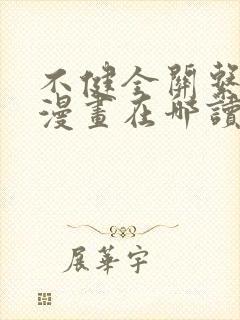 不健全關繫
漫畫在哪讀
展華宇